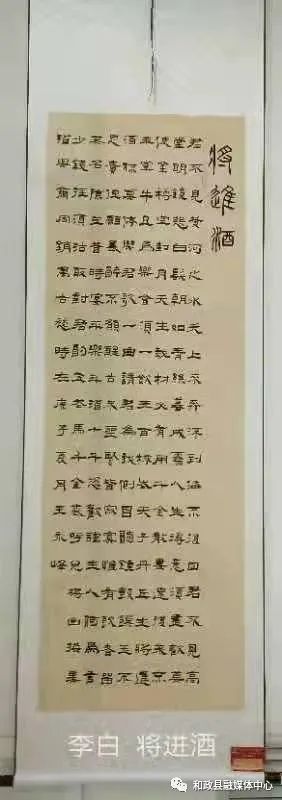 將進酒
君不見黃河之水天上來奔流到海不復回君不見高
堂明鏡悲白髮朝如青絲暮成雪人生得意須盡歡莫
使金樽空對月天生我材必有用千金散盡還復來
烹羊宰牛且為樂會須一飲三百杯岑夫子丹丘生將進
酒杯莫停與君歌一曲請君為我側耳聽鐘鼓饌玉不
足貴但願長醉不願醒古來聖賢皆寂寞惟有飲者留
其名陳王昔時宴平樂斗酒十千恣歡謔主人何為言
少錢徑須沽取對君酌五花馬千金裘呼兒將出換美
酒與爾同銷萬古愁時在庚子夏月王永峰
李白 将进酒
和政县融媒体中心